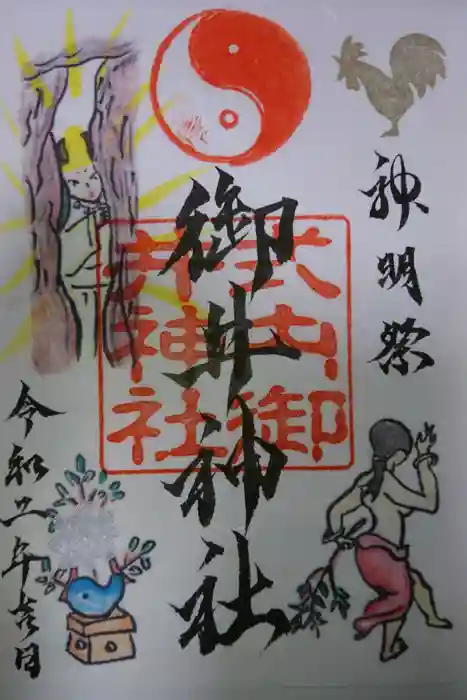 神明祭
御井神社
式内御
井神社
令和二年吉日